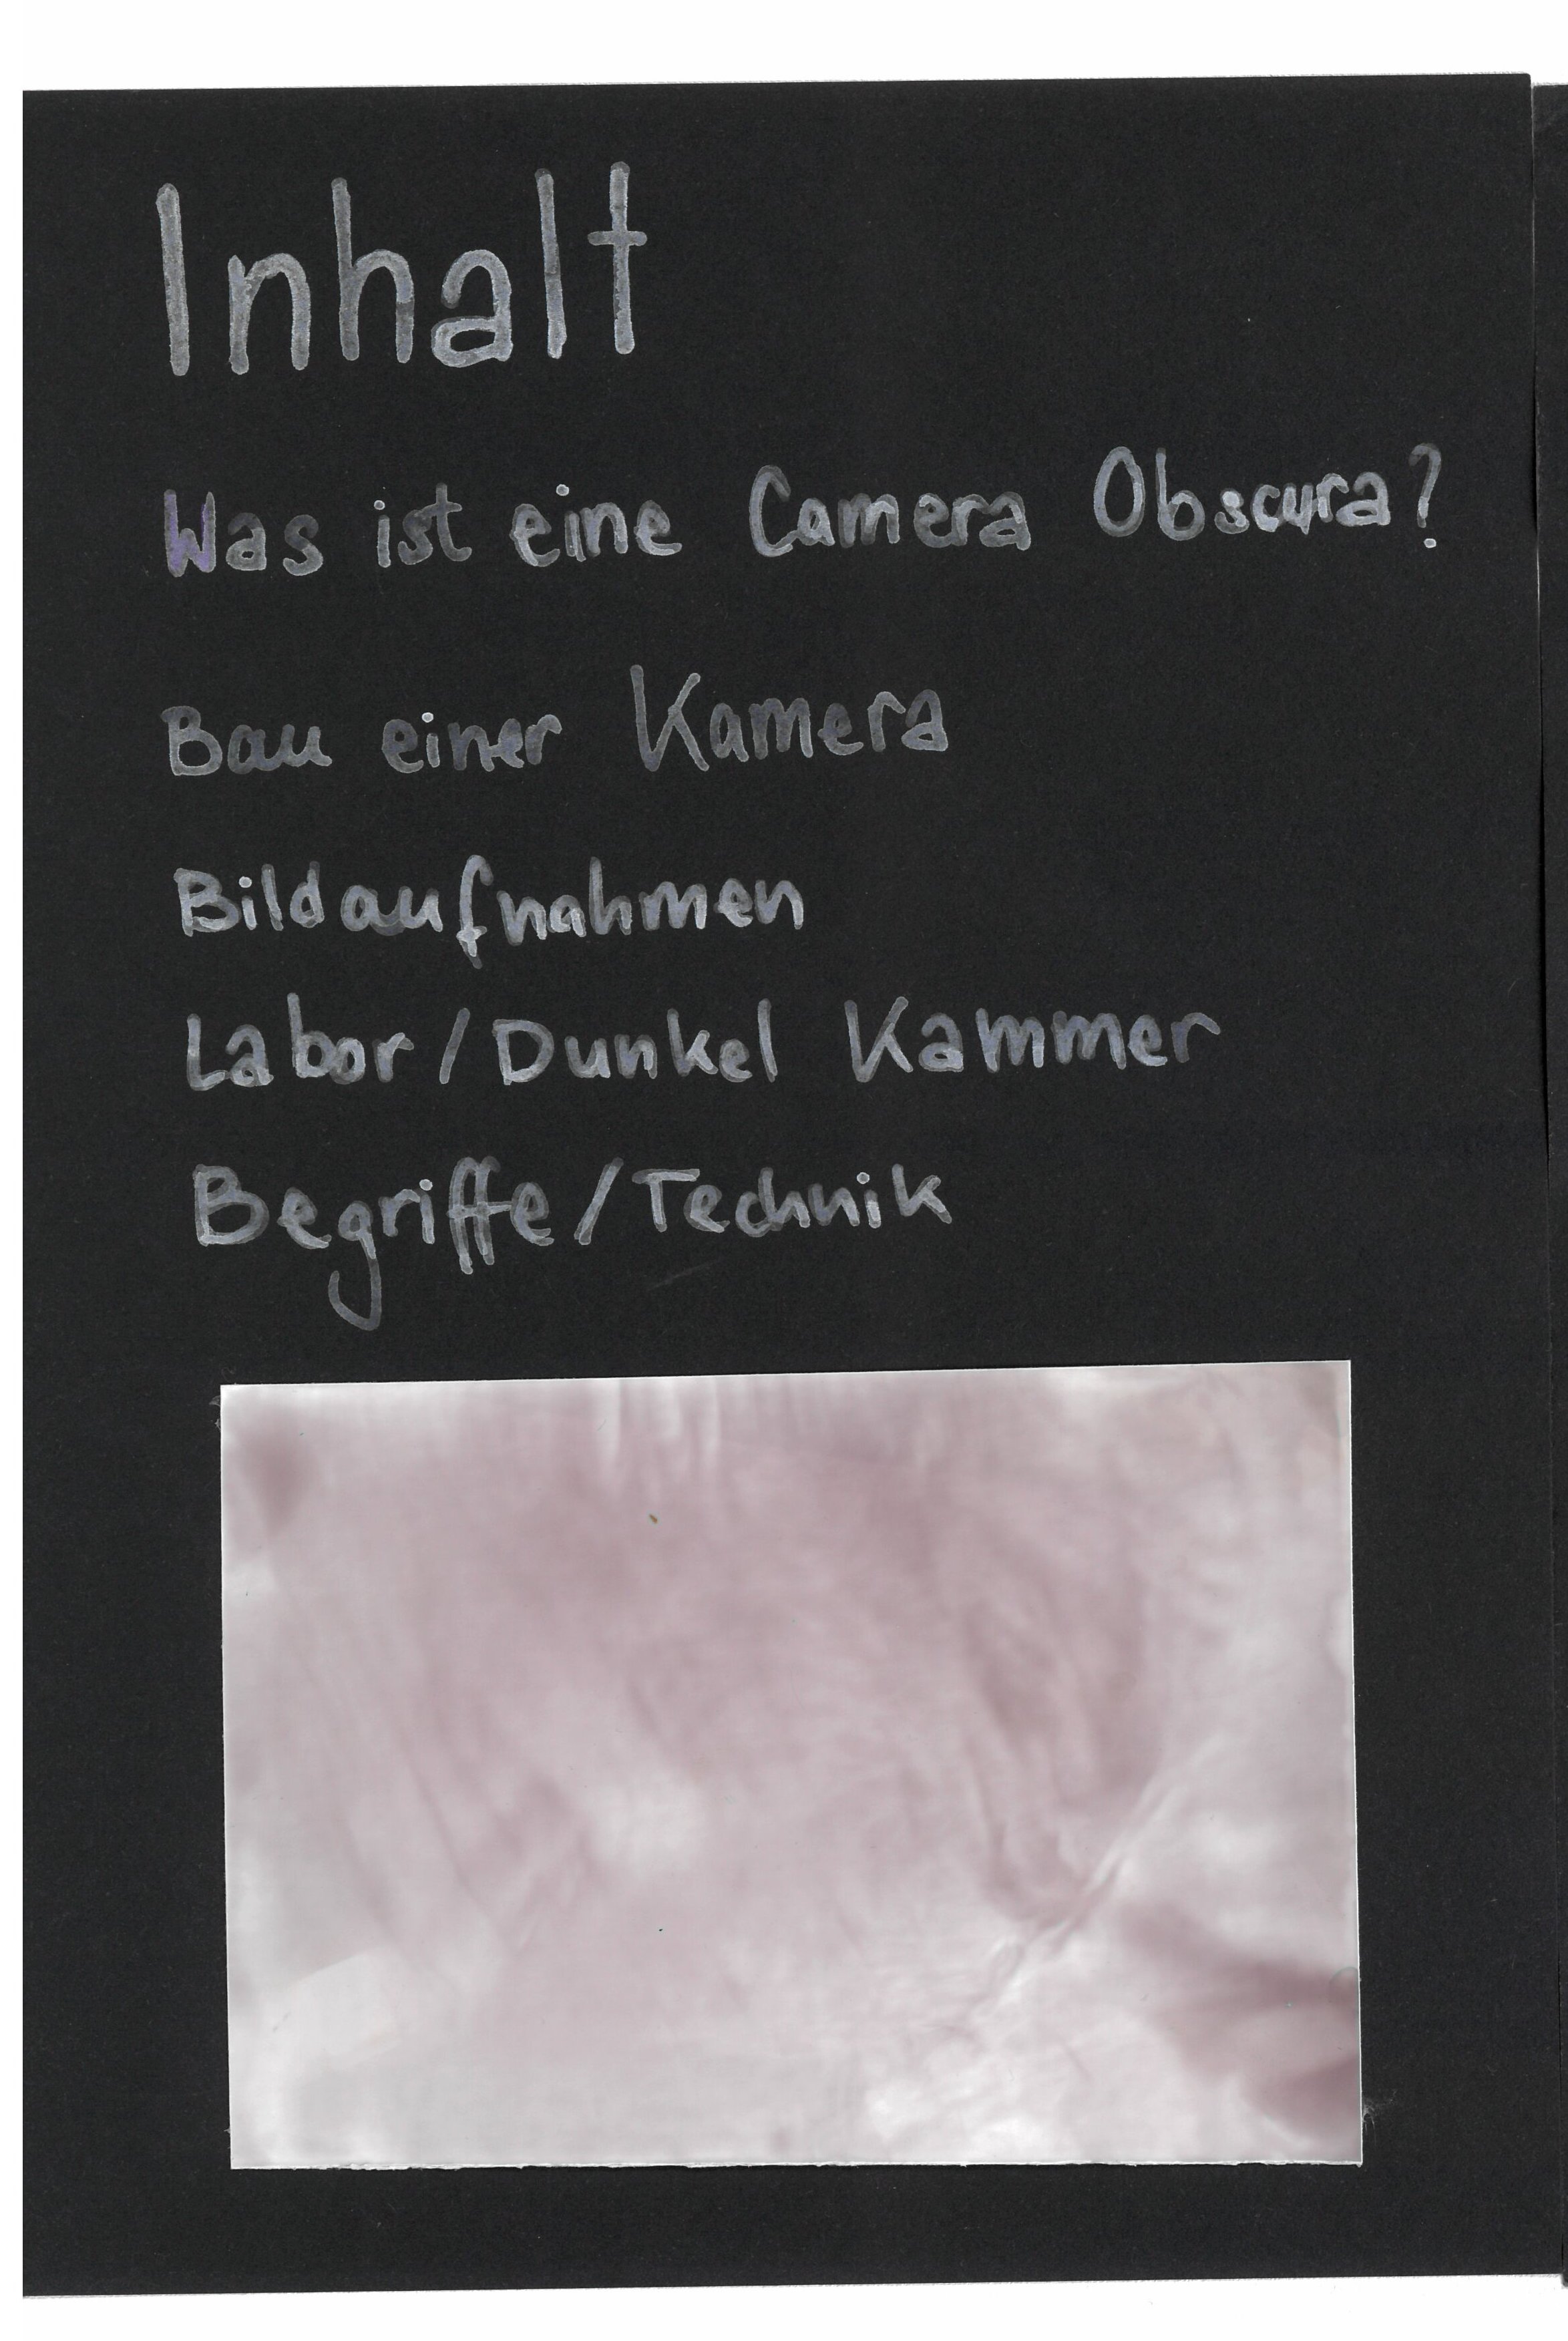 Inhalt
Was ist eine Camera Obscura?
Bau einer Kamera
Bildaufnahmen
Labor/Dunkel Kammer
Begriffe/Technik